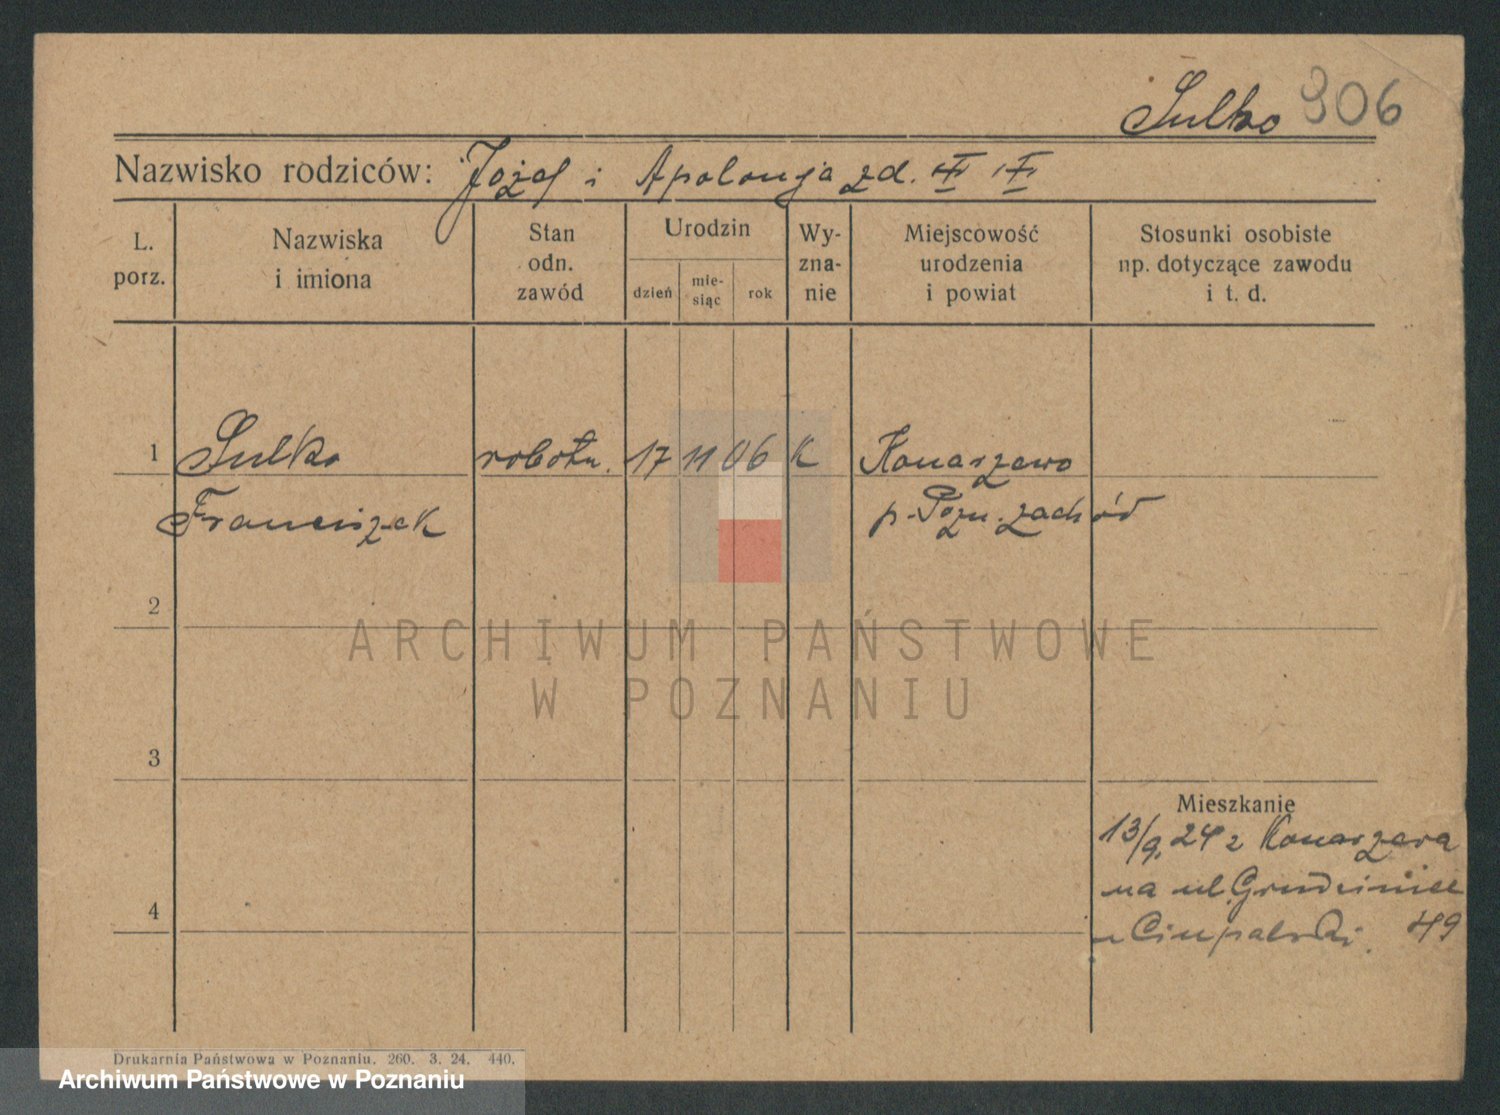 Sulko 906
Nazwisko rodziców: Józef i Apolonja zd.
L. porz. Nazwiska i imiona Stan odn. zawód Urodzin dzień mie-siąc rok Wy-zna-nie Miejscowość urodzenia i powiat Stosunki osobiste np. dotyczące zawodu i t. d.
1 Sulko robotn. 17 11 06 K Konarzewo
Franciszek p. Pozn. zachód
ARCHIWUM PAŃSTWOWE
W POZNANIU
2
3
Mieszkanie
13/9. 24 z Konarzewa
na ul. Grudzieniec
4 u 49
Drukarnia Państwowa w Poznaniu. 260. 3. 24. 440.
Archiwum Państwowe w Poznaniu